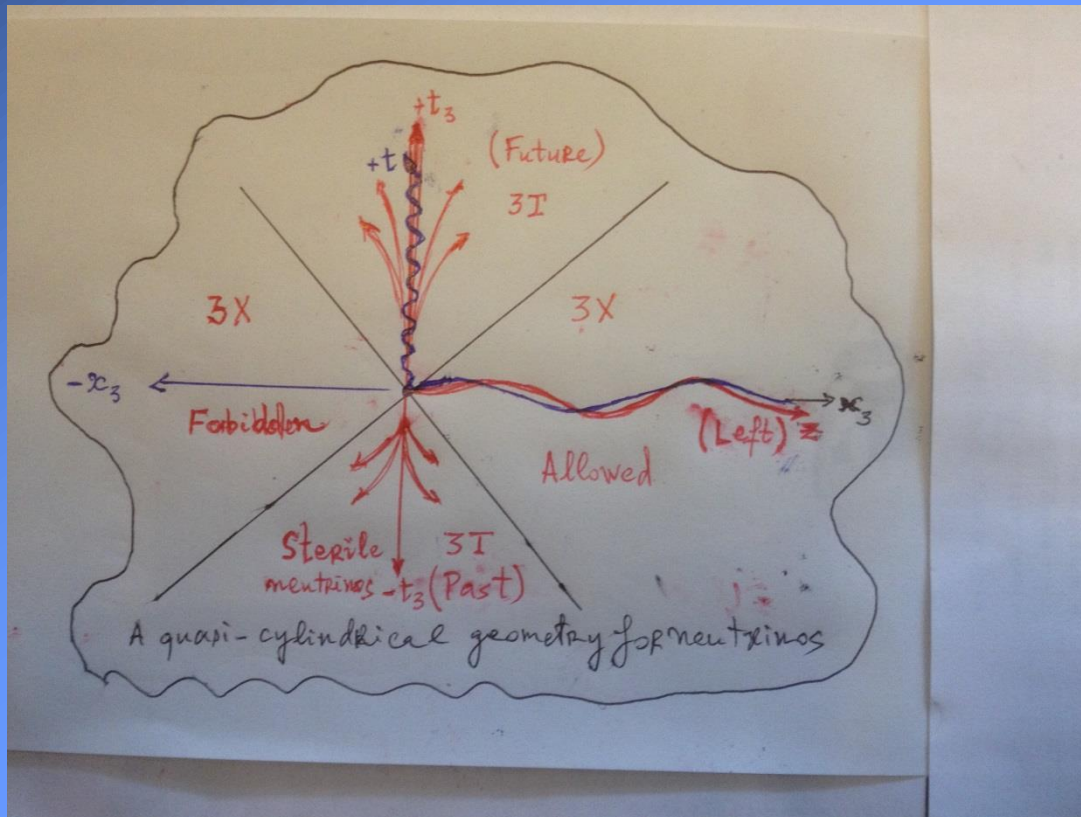 +t₃
+t
(Future)
3T
3X
3X
-x₃
x₃
Forbidden
(Left) z
Allowed
Sterile
neutrinos
3T
-t₃ (Past)
A quasi-cylindrical geometry for neutrinos